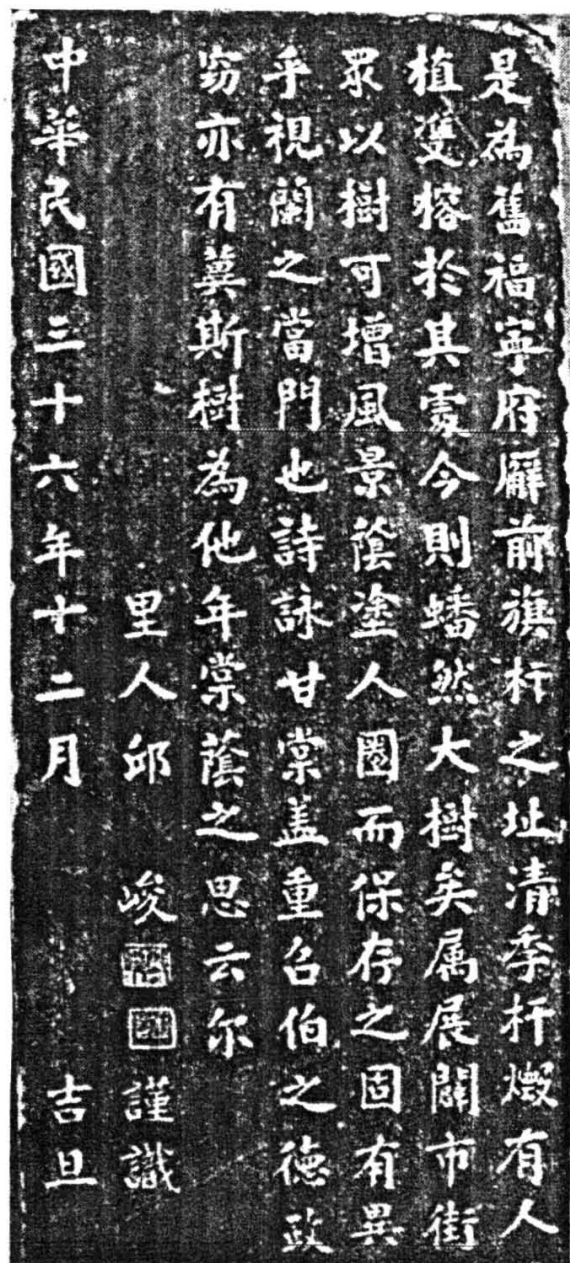 是為舊福寧府廨前旗杆之址清季杆燬有人
植雙榕於其處今則蟠然大樹矣属展闢市街
眾以樹可增風景蔭塗人圈而保存之固有異
乎視蘭之當門也詩詠甘棠盖重召伯之德政
窃亦有冀斯樹為他年棠蔭之思云尔
里人邱峻謹識
中華民國三十六年十二月吉旦